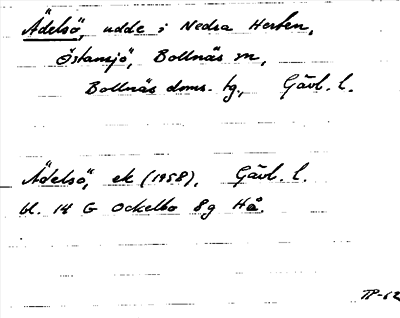 Ädelsö, udde i Nedra Herten,
Östansjö, Bollnäs m,
Bollnäs doms. tg, Gävl. l.
Ädelsö, ek (1958), Gävl. l.
bl. 14 G Ockelbo 8g Hå.
TP-62